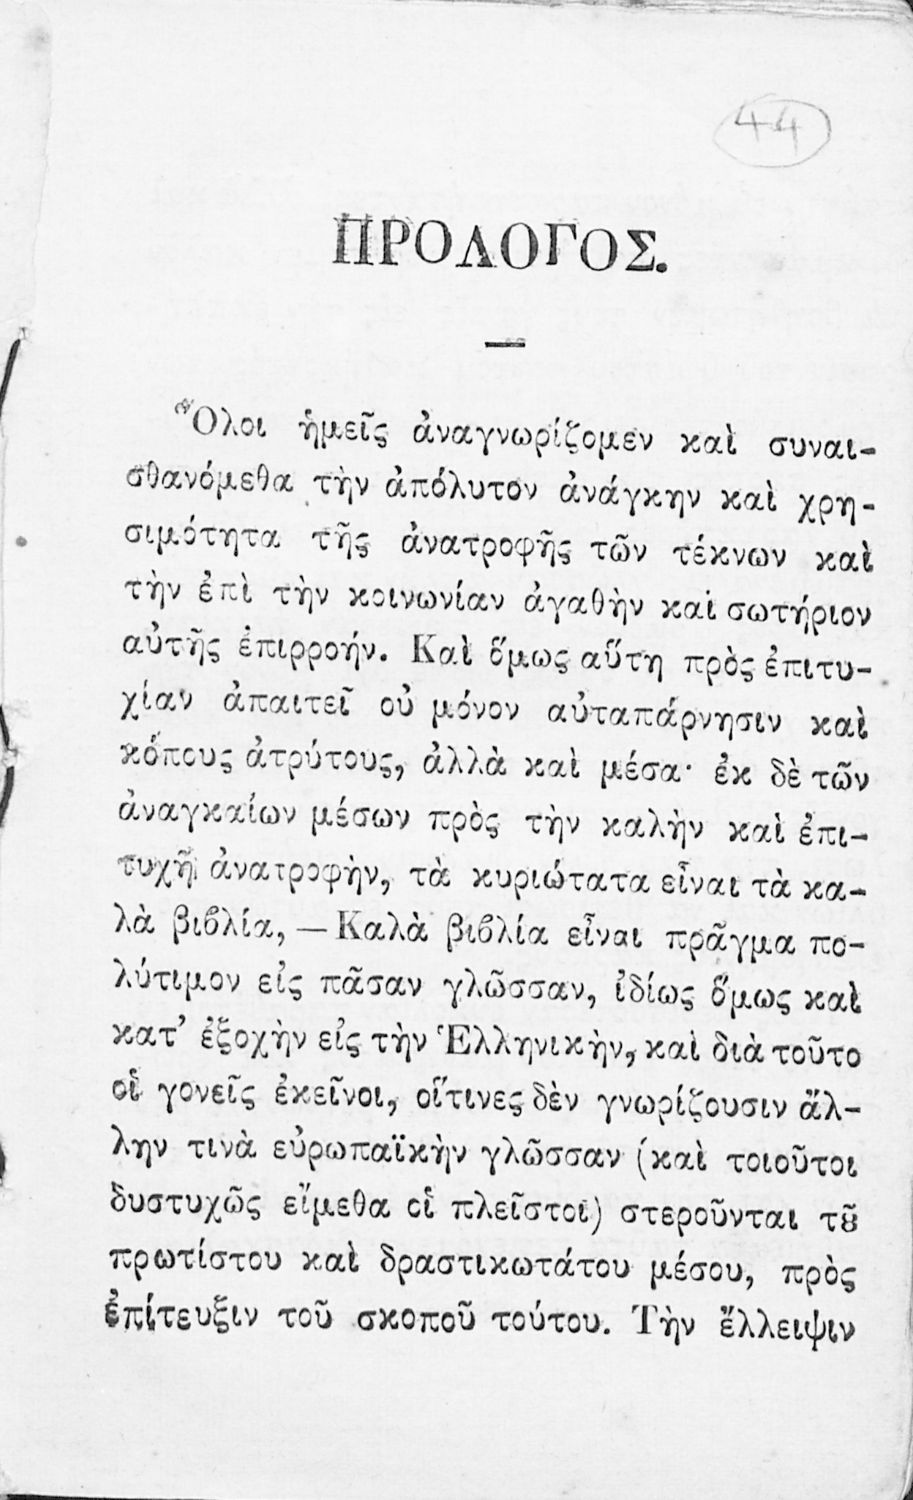 44
ΠΡΟΛΟΓΟΣ.
Ὅλοι ἡμεῖς ἀναγνωρίζομεν καὶ συναι-
σθανόμεθα τὴν ἀπόλυτον ἀνάγκην καὶ χρη-
σιμότητα τῆς ἀνατροφῆς τῶν τέκνων καὶ
τὴν ἐπὶ τὴν κοινωνίαν ἀγαθὴν καὶ σωτήριον
αὐτῆς ἐπιρροήν. Καὶ ὅμως αὕτη πρὸς ἐπιτυ-
χίαν ἀπαιτεῖ οὐ μόνον αὐταπάρνησιν καὶ
κόπους ἀτρύτους, ἀλλὰ καὶ μέσα· ἐκ δὲ τῶν
ἀναγκαίων μέσων πρὸς τὴν καλὴν καὶ ἐπι-
τυχῆ ἀνατροφὴν, τὰ κυριώτατα εἶναι τὰ κα-
λὰ βιϐλία, — Καλὰ βιϐλία εἶναι πρᾶγμα πο-
λύτιμον εἰς πᾶσαν γλῶσσαν, ἰδίως ὅμως καὶ
κατ’ ἐξοχὴν εἰς τὴν Ἑλληνικὴν, καὶ διὰ τοῦτο
οἱ γονεῖς ἐκεῖνοι, οἵτινες δὲν γνωρίζουσιν ἄλ-
λην τινὰ εὐρωπαϊκὴν γλῶσσαν (καὶ τοιοῦτοι
δυστυχῶς εἴμεθα οἱ πλεῖστοι) στεροῦνται τȣ͂
πρωτίστου καὶ δραστικωτάτου μέσου, πρὸς
ἐπίτευξιν τοῦ σκοποῦ τούτου. Τὴν ἔλλειψιν